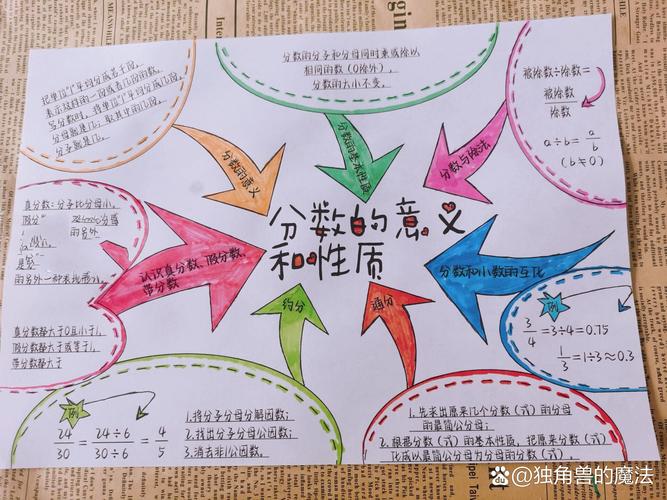 把单位"1"平均分成若干份,
表示这样的一份或者几份的数。
写分数时,将单位"1"平均分成几份,
分母就是几;取其中的几份,
分子就是几。
分数的意义
分数的分子和分母同时乘或除以
相同的数(0除外),
分数的大小不变。
分数的基本性质
被除数÷除数=
被除数
除数
a÷b=a/b
(b≠0)
分数与除法
分数的意义
和性质
真分数:分子比分母小。
假分
的另外
是
的另外一种表现
真分数都大于0且小于1,
假分数都大于或等于1,
带分数都大于
认识真分数、假分数、
带分数
分数和小数的互化
例
3/4=3÷4=0.75
1/3=1÷3≈0.3
约分
通分
例
24/30=24÷6/30÷6=4/5
1.将分子分母分解因数;
2.找出分子分母公因数;
3.消去非1公因数。
1.先求出原来几个分数(式)的分母
的最简公分母;
2.根据分数(式)的基本性质,把原来分数(式)
化成以最简公分母为分母的分数(式)
Baidu百科 @独角兽的魔法